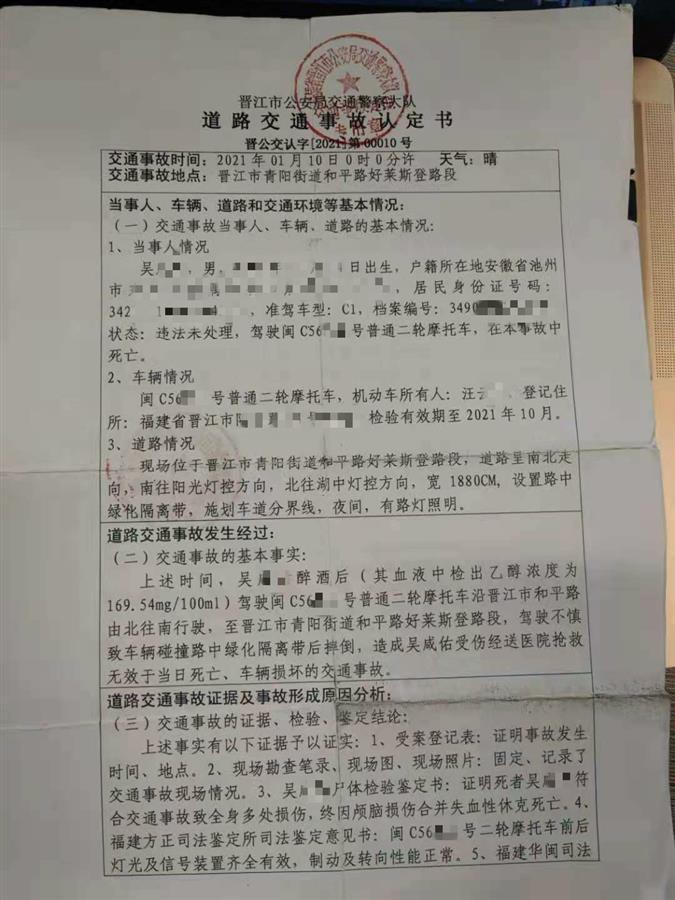 晋江市公安局交通警察大队
道路交通事故认定书
晋公交认字[2021]第00010号
交通事故时间：2021年01月10日0时0分许 天气：晴
交通事故地点：晋江市青阳街道和平路好莱斯登路段
当事人、车辆、道路和交通环境等基本情况：
（一）交通事故当事人、车辆、道路的基本情况：
1、当事人情况
吴 ，男， 日出生，户籍所在地安徽省池州
市 ，居民身份证号码：
342 ，准驾车型：C1，档案编号：3490
状态：违法未处理，驾驶闽C56 号普通二轮摩托车，在本事故中
死亡。
2、车辆情况
闽C56 号普通二轮摩托车，机动车所有人：汪 、登记住
所：福建省晋江市 检验有效期至2021年10月。
3、道路情况
现场位于晋江市青阳街道和平路好莱斯登路段，道路呈南北走
向，南往阳光灯控方向，北往湖中灯控方向，宽1880CM，设置路中
绿化隔离带，施划车道分界线，夜间，有路灯照明。
道路交通事故发生经过：
（二）交通事故的基本事实：
上述时间，吴 醉酒后（其血液中检出乙醇浓度为
169.54mg/100ml）驾驶闽C56 号普通二轮摩托车沿晋江市和平路
由北往南行驶，至晋江市青阳街道和平路好莱斯登路段，驾驶不慎
致车辆碰撞路中绿化隔离带后摔倒，造成吴威佑受伤经送医院抢救
无效于当日死亡、车辆损坏的交通事故。
道路交通事故证据及事故形成原因分析：
（三）交通事故的证据、检验、鉴定结论：
上述事实有以下证据予以证实：1、受案登记表：证明事故发生
时间、地点。2、现场勘查笔录、现场图、现场照片：固定、记录了
交通事故现场情况。3、吴 尸体检验鉴定书：证明死者吴 符
合交通事故致全身多处损伤，终因颅脑损伤合并失血性休克死亡。4、
福建方正司法鉴定所司法鉴定意见书：闽C56 号二轮摩托车前后
灯光及信号装置齐全有效，制动及转向性能正常。5、福建华闽司法